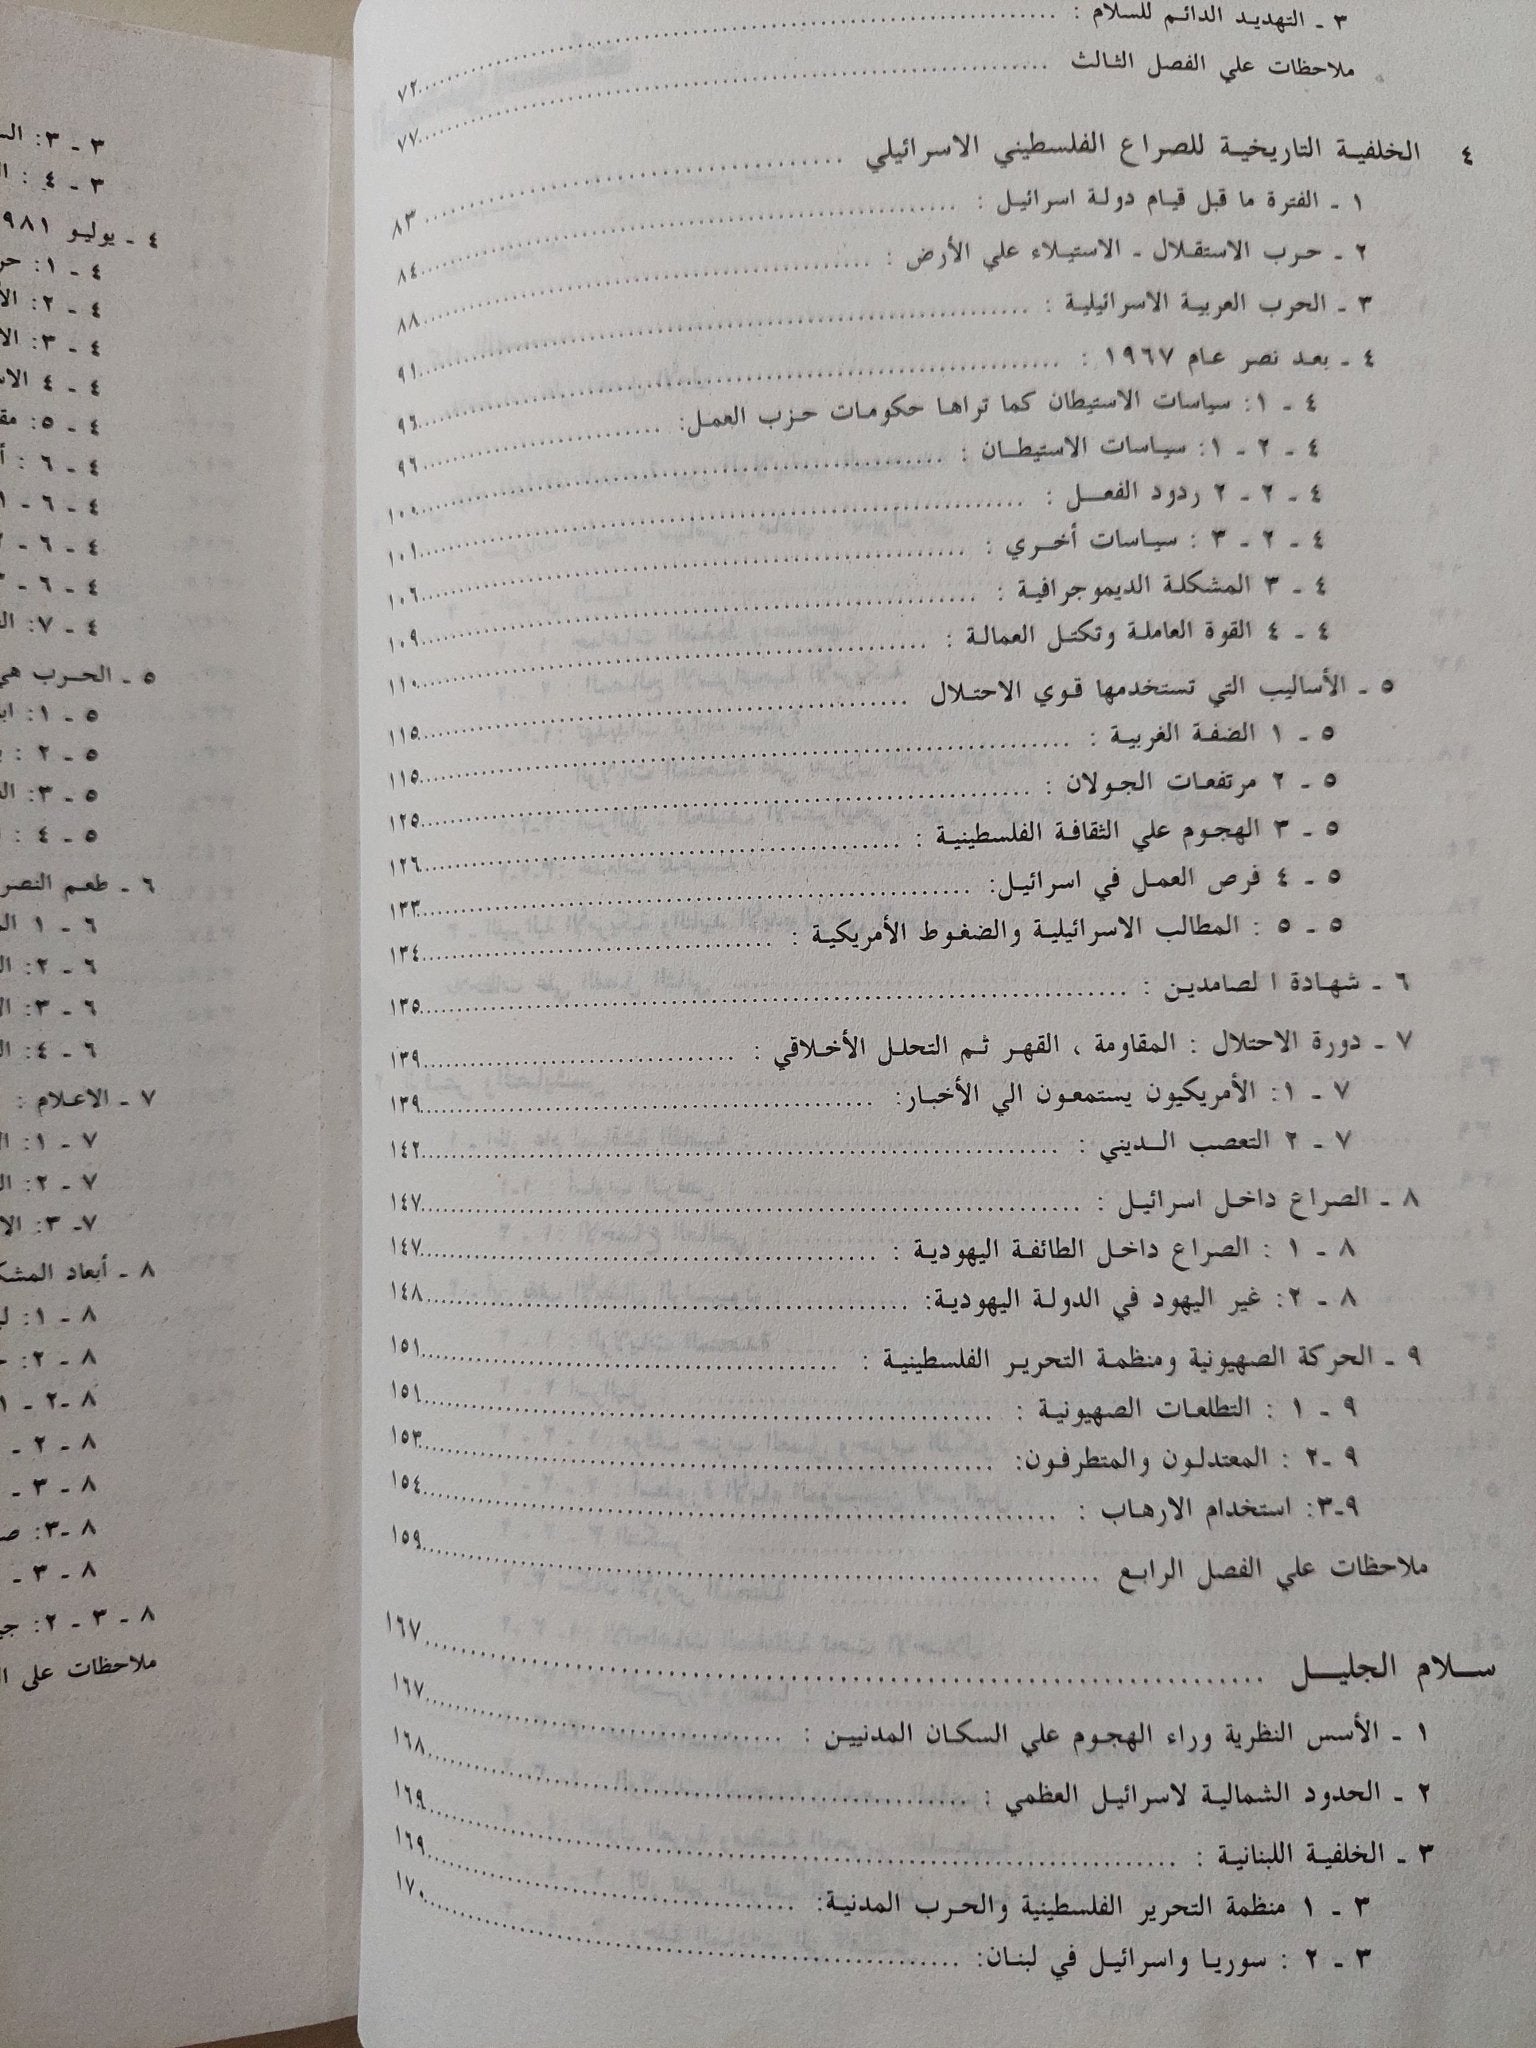 ٣ ـ التهديد الدائم للسلام : ٧٢
ملاحظات علي الفصل الثالث ٧٧
٤ الخلفية التاريخية للصراع الفلسطيني الاسرائيلي ٨٣
١ ـ الفترة ما قبل قيام دولة اسرائيل : ٨٤
٢ ـ حرب الاستقلال ـ الاستيلاء علي الأرض : ٨٨
٣ ـ الحرب العربية الاسرائيلية : ٩١
٤ ـ بعد نصر عام ١٩٦٧ : ٩٦
٤ ـ ١: سياسات الاستيطان كما تراها حكومات حزب العمل: ٩٦
٤ ـ ٢ ـ ١: سياسات الاستيطان : ١٠٠
٤ ـ ٢ ـ ٢ ردود الفعل : ١٠١
٤ ـ ٢ ـ ٣ : سياسات أخري : ١٠٦
٤ ـ ٣ المشكلة الديموجرافية : ١٠٩
٤ ـ ٤ القوة العاملة وتكتل العمالة : ١١٠
٥ ـ الأساليب التي تستخدمها قوي الاحتلال ١١٥
٥ ـ ١ الضفة الغربية : ١١٥
٥ ـ ٢ مرتفعات الجولان : ١٢٥
٥ ـ ٣ الهجوم علي الثقافة الفلسطينية : ١٢٦
٥ ـ ٤ فرص العمل في اسرائيل: ١٣٣
٥ ـ ٥ : المطالب الاسرائيلية والضغوط الأمريكية : ١٣٤
٦ ـ شهادة ا لصامدين : ١٣٥
٧ ـ دورة الاحتلال : المقاومة ، القهر ثم التحلل الأخلاقي : ١٣٩
٧ ـ ١: الأمريكيون يستمعون الي الأخبار: ١٣٩
٧ ـ ٢ التعصب الديني : ١٤٢
٨ ـ الصراع داخل اسرائيل : ١٤٧
٨ ـ ١ : الصراع داخل الطائفة اليهودية : ١٤٧
٨ ـ ٢: غير اليهود في الدولة اليهودية: ١٤٨
٩ ـ الحركة الصهيونية ومنظمة التحرير الفلسطينية : ١٥١
٩ ـ ١ : التطلعات الصهيونية : ١٥١
٩ ـ٢ : المعتدلون والمتطرفون: ١٥٣
٩ـ٣: استخدام الارهاب : ١٥٤
ملاحظات علي الفصل الرابع ١٥٩
سلام الجليل ١٦٧
١ ـ الأسس النظرية وراء الهجوم علي السكان المدنيين : ١٦٧
٢ ـ الحدود الشمالية لاسرائيل العظمي : ١٦٨
٣ ـ الخلفية اللبنانية : ١٦٩
٣ ـ ١ منظمة التحرير الفلسطينية والحرب المدنية: ١٦٩
٣ ـ ٢ : سوريا واسرائيل في لبنان: ١٧٠
٣ ـ ٣:
٣ ـ ٤ :
٤ ـ يوليو
٤ ـ ١:
٤ ـ ٢:
٤ ـ ٣:
٤ ـ ٤
٤ ـ ٥:
٤ ـ ٦ :
٤ ـ ٦ ـ ١
٤ ـ ٦ ـ
٤ ـ ٦ ـ
٤ ـ ٧:
٥ ـ الحرب هي
٥ ـ ١:
٥ ـ ٢ :
٥ ـ ٣:
٥ ـ ٤ :
٦ ـ طعم النصر
٦ ـ ١
٦ ـ ٢:
٦ ـ ٣:
٦ ـ ٤:
٧ ـ الاعلام :
٧ ـ ١:
٧ ـ ٢:
٧ـ ٣:
٨ ـ أبعاد
٨ ـ ١:
٨ ـ ٢:
٨ ـ٢ ـ ١
٨ ـ ٢ ـ
٨ ـ ٣ ـ
٨ ـ٣:
٨ ـ ٣ ـ
٨ ـ ٣ ـ ٢:
ملاحظات على